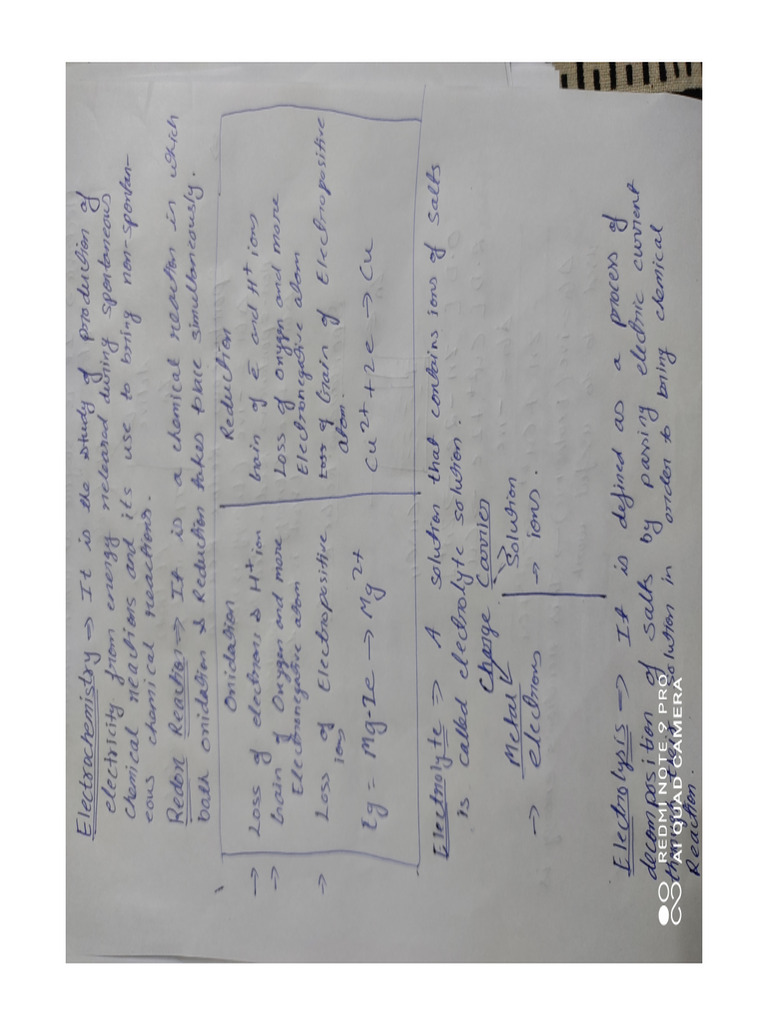 Electrochemistry → It is the study of production of
electricity from energy released during spontaneous
chemical reactions and its use to bring non-spontan-
eous chemical reactions.
Redox Reaction → It is a chemical reaction in which
both oxidation & Reduction takes place simultaneously.
Oxidation Reduction
→ Loss of electrons & H+ ion Gain of e and H+ ions
→ Gain of Oxygen and more Loss of Oxygen and more
Electronegative atom Electronegative atom
→ Loss of Electropositive Loss of Gain of Electropositive
ions atom.
Eg = Mg-2e → Mg2+ Cu2+ + 2e → Cu
Electrolyte → A solution that contains ions of salts
is called electrolyte solution.
Charge Carriers
Metal Solution
→ electrons → ions.
Electrolysis → It is defined as a process of
decomposition of salts by passing electric current
solution in order to bring chemical
Reaction.
REDMI NOTE 9 PRO
AI QUAD CAMERA